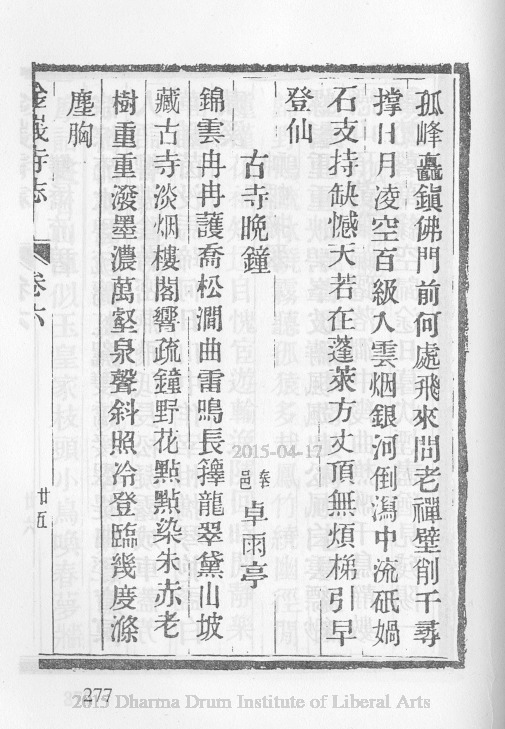 孤峰矗鎮佛門前何處飛來問老禪壁削千尋
撑日月凌空百級入雲烟銀河倒瀉中流砥媧
石支持缺憾天若在蓬萊方丈頂無煩梯引早
登仙
古寺晚鐘
邑奉 卓雨亭
錦雲冉冉護喬松澗曲雷鳴長籜龍翠黛山坡
藏古寺淡烟樓閣響疏鐘野花點點染朱赤老
樹重重潑墨濃萬壑泉聲斜照冷登臨幾度滌
塵胸
金峩寺志
卷六
廿五
2015-04-17
277
2015 Dharma Drum Institute of Liberal Arts